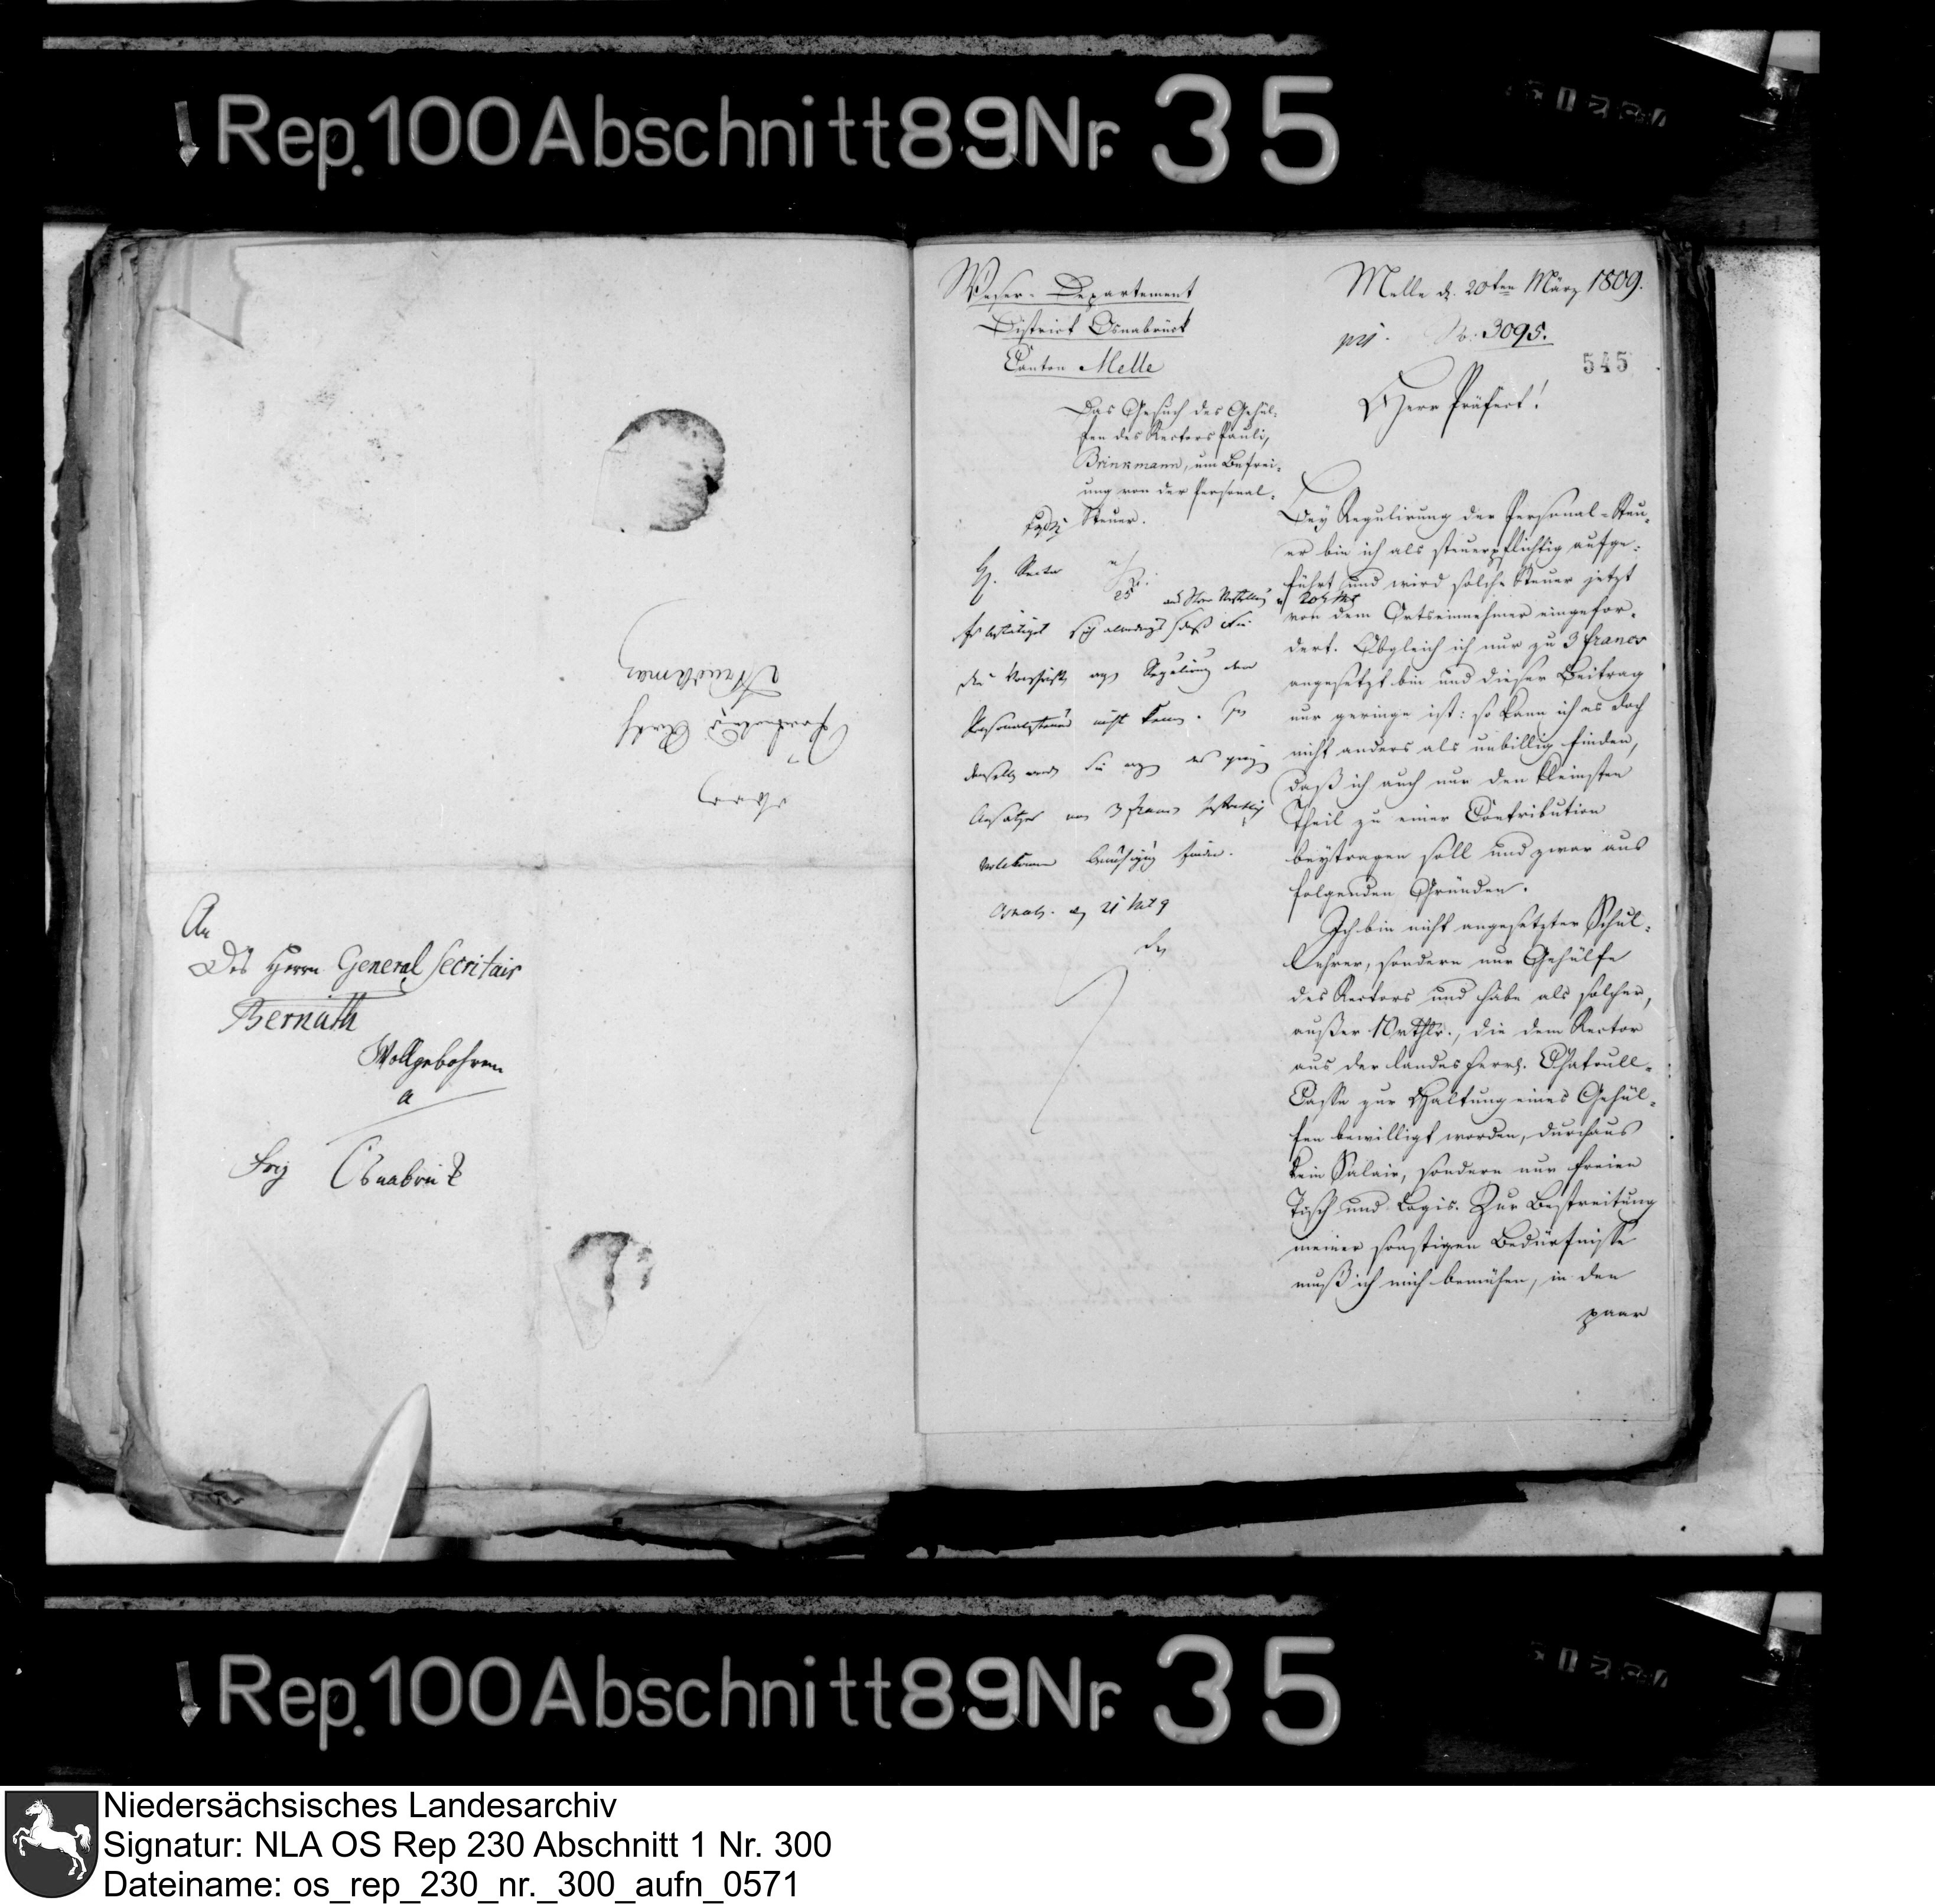 Rep. 100 Abschnitt 89 Nr. 35
An
Des Herrn General Secritair
Bernuth
Wollgebohren
a
frey Osnabrük
Weser-Departement
District Osnabrück
Canton Melle
Das Gesuch des Gehül-
fen des Rectors Pauli,
Brinkmann, um Befrei-
ung von der Personal-
Steuer.
Melle d. 20ten März 1809.
No: 3095.
545
Herr Präfect!
Bey Regulirung der Personal-Steu-
er bin ich als steuerpflichtig aufge-
führt und wird solche Steuer jetzt
von dem Ortseinnehmer eingefor-
dert. Obgleich ich nur zu 3 francs
angesetzt bin und dieser Beitrag
nur geringe ist: so kann ich es doch
nicht anders als unbillig finden,
daß ich auch nur den kleinsten
Theil zu einer Contribution
beytragen soll und zwar aus
folgenden Gründen.
Ich bin nicht angesetzter Schul-
lehrer, sondern nur Gehülfe
des Rectors und habe als solcher,
außer 10 rthlr., die dem Rector
aus der landesherrl. Chatoull-
Casse zur Haltung eines Gehül-
fen bewilligt worden, durchaus
kein Salair, sondern nur freien
Tisch und Logis. Zur Bestreitung
meiner sonstigen Bedürfnisse
muß ich mich bemühen, in den
paar
H. Rector
25
Es bestätiget sich allerdings, daß Sie
die Vorschrift Regulirung der
Personalsteuer nicht
Ansatzes von 3 francs
vollkommen Beruhigung finden.
Osnab. d 21 Mrz 9
Rep. 100 Abschnitt 89 Nr. 35
Niedersächsisches Landesarchiv
Signatur: NLA OS Rep 230 Abschnitt 1 Nr. 300
Dateiname: os_rep_230_nr._300_aufn_0571